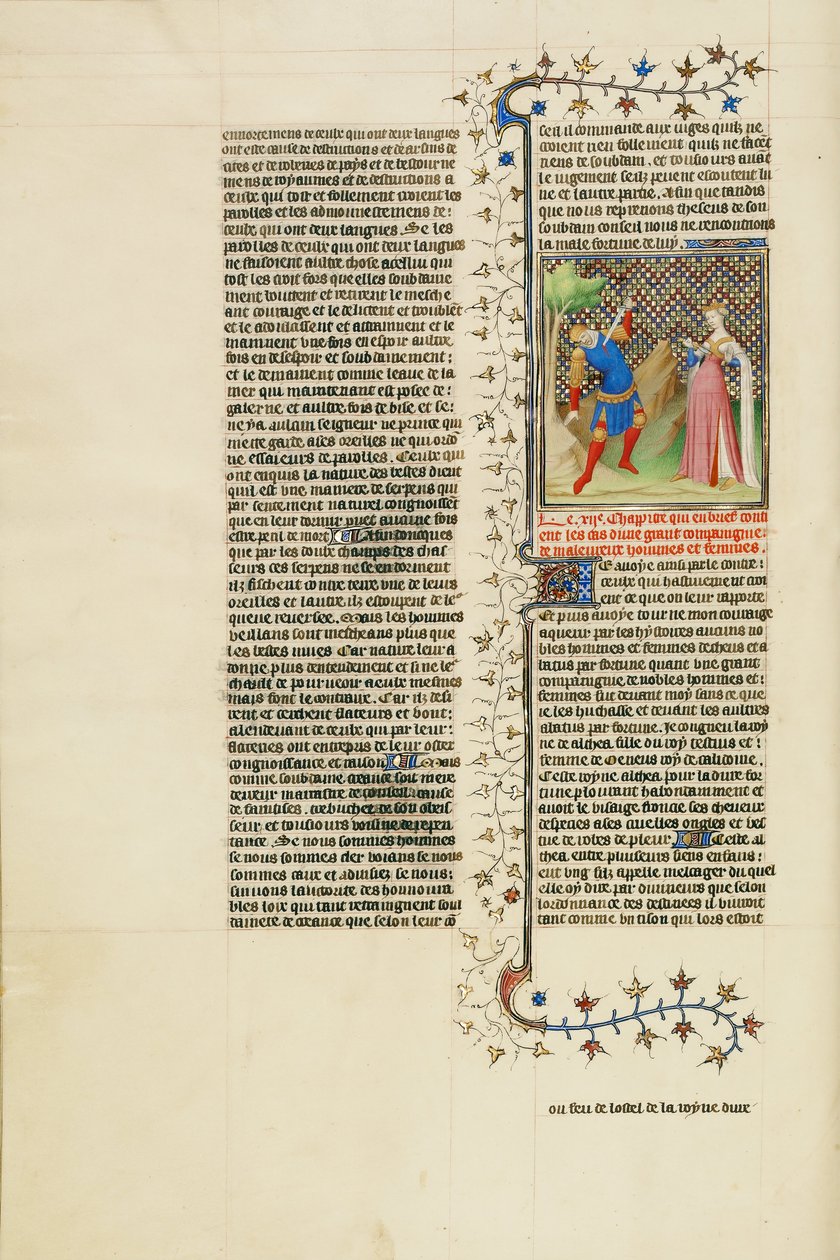 ennortemens de ceulx qui ont deux langues
ont este cause de destructions et de arsins de
cites et de roberies de pays et de bestourne
mens de royaumes et de destructions a
ceulx qui tost et follement croient les
parolles et les admonnestemens de:
ceulx qui ont deux langues. Se les
parolles de ceulx qui ont deux langues
ne faisoient aultre chose a celluy qui
tost les croit fors que elles soubdaine
ment boutent et retirent le mesche
ant couraige et le delictent et troublent
et le adoulcissent et attrainent et le
mainnent une fois en espoir aultre
fois en desespoir et soubdainement:
et le demainent comme leaue de la
mer qui maintenant est posee de:
galerne et aultre fois de bise et se:
ne y a aulcun seigneur ne prince qui
mette garde a ses oreilles ne qui ordo
ne essaieurs de parolles. Ceulx qui
ont enquis la nature des bestes dient
quil est une maniere de serpens qui
par sentement naturel congnoissent
que en leur dormir puet aucune fois
estre peril de mort Afin doncques
que par les doulx champs des chas
seurs ces serpens ne se endorment
ilz fischent contre terre une de leurs
oreilles et lautre ilz estoupent de le
queue reversee. Mais les hommes
veillans sont mescheans plus que
les bestes mues Car nature leur a
donne plus dentendement et si ne le
chault de pourveoir a eulx mesmes
mais font le contraire. Car ilz desi
rent et cerchent flateurs et bout:
alendevant de ceulx qui par leur:
flateries ont entrepris de leur oster
congnoissance et raison Mais
comme soubdaine creance soit mere
derreur marrastre de conseil cause
de faintises. trebuchet de son obeis
seur et tousiours voisine de repen
tance. Se nous sommes hommes
se nous sommes cler voians se nous
sommes caux et advisez se nous:
suivons lauctorite des honnoura
bles loix qui tant restraignent soub
dainete de creance que selon leur co
seil il commande aux iuges quilz ne
croient rien follement quilz ne facent
riens de soubdain. et tousiours avant
le iugement seilz peuent escoutent lu
ne et lautre partie. Afin que tandis
que nous reprenons theseus de son
soubdain conseil nous ne rencontrions
la male fortune de luy.
Le .xiie. Chappitre qui en brief conti
ent les cas dune grant compaignie:
de maleureux hommes et femmes.
Ie avoye ainsi parle contre:
ceulx qui hastivement croi
ent ce que on leur rapporte
Et puis avoye tourne mon couraige
a querir par les hystoires aucuns no
bles hommes et femmes decheus et a
batus par fortune quant une grant
compaignie de nobles hommes et:
femmes fut devant moy sans ce que
ie les huchasse et devant les aultres
abatus par fortune. Je congneu la roy
ne de althea fille du roy testius et:
femme de Oeneus roy de calidoine.
Ceste royne althea pour la dure for
tune plourant habondamment et
avoit le visaige froncie ses cheveux
despecies a ses cruelles ongles et ves
tue de robes de pleur. Ceste al
thea entre plusieurs siens enfans:
eut ung filz appelle meleager du quel
elle oy dire par divineurs que selon
lordonnance des destinees il vivroit
tant comme un tison qui lors estoit
ou feu de lostel de la royne dure